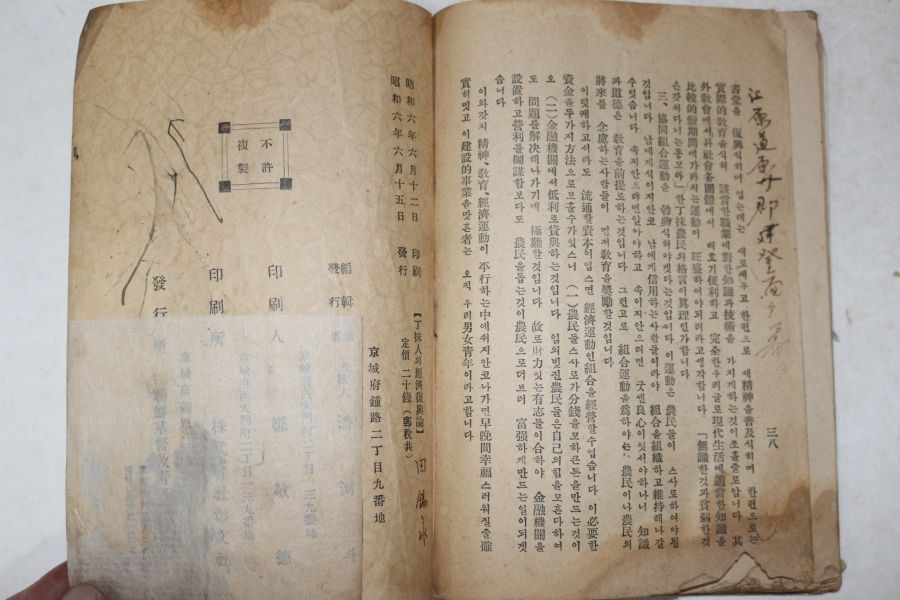 三八
書堂을 復興식히며 업는데는 새로세우고 한편으로 새精神을普及식히며 한편으로는
實際的敎育을식혀 該當한職業에對한知識과技術을 가지게하는것이조흘줄로압니다 其
外敎會에서와社會各團體에서 비호기便利하고 完全한우리글로現代生活에適當한知識을
比較的短期間에가라치는運動이 旺盛하여야되리라고생각합니다 「無識한것과貧窮한것
은갓치다니는동모라」한丁抹農民의格言이眞理인가합니다
三、協同組合運動을 勃興식혀야겟다는것임니다 이運動은 農民들이 스사로하여야된
것임니다 남에게식이지안코 남에게信用하는사람들이라야 組合을組織하고維持해나갈
수잇슴니다 속지안으랴면알아야하고 속이지안으려면 굿센良心이잇서야하나니 知識
과道德은 敎育을前提로하는것임니다 그런고로 組合運動을爲하야는 農民이나農民의
將來를 念慮하는사람들이 먼저敎育을奬勵할것임니다
이럿케하고서라도 流通할資本이업스면 經濟運動인組合을經營할수업슴니다 이必要한
資金을두가지方法으로모흘수가잇스니 (一)農民들스사로가分錢을모하큰돈을만드는것이
오 (二)金融機關에서低利로貸與하는것임니다 임의빗진農民들은自己의힘을모흔다하여
도 問題를解決해나가기에 極難할것임니다 故로財力잇는有志들이合하야 金融機關을
設置하고營利를圖謀함보다도 農民을돕는것이農民으로더브러 富强하게만드는일이되겟
슴니다
이와갓치 精神、敎育、經濟運動이 平行하는中에쉬지안코나가면早晩間幸福스러워질줄確
實히밋고 이建設的事業을맛흔者는 오직 우리男女靑年이라고합니다
昭和六年六月十二日 印刷
昭和六年六月十五日 發行
【丁抹人의經濟復興論】
定價 二十錢(郵稅共)
不許
複製
京城府鍾路二丁目九番地
編輯
發行
河斗
印刷人 鄭敬德
印刷所 株式會社彰文社
發行所